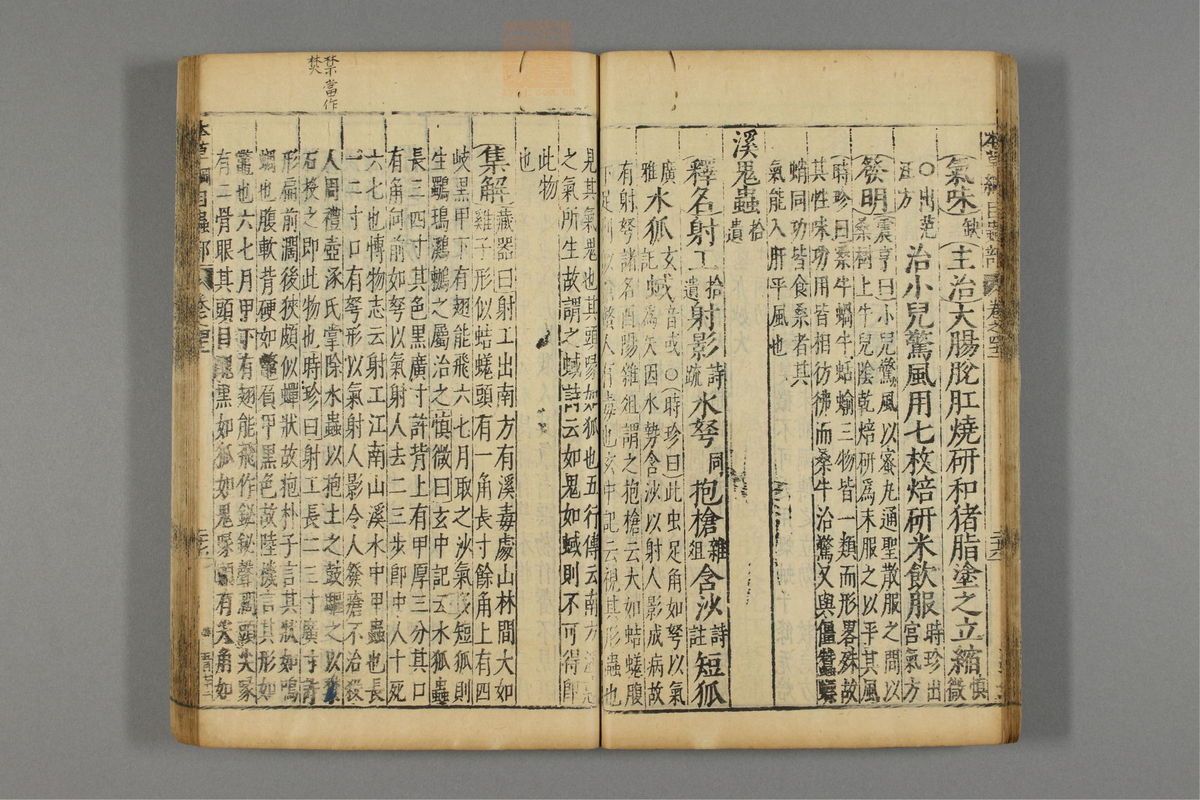 氣味缺主治大腸脫肛燒研和猪脂塗之立縮慎微
○出范汪方治小兒驚風用七枚焙研米飲服時珍出宮氣方
發明震亨曰小兒驚風以蜜丸通聖散服之間以
桑樹上牛兒陰乾焙研爲末服之以平其風
時珍曰桑牛蝸牛蛞蝓三物皆一類而形畧殊故
其性味功用皆相彷彿而桑牛治驚又與僵蠶
蛸同功皆食桑者其
氣能入肝平風也
溪鬼蟲拾遺
釋名射工拾遺射影詩疏水弩同抱槍雜俎含沙詩註短狐
廣雅水狐玄記蜮音或○時珍曰此虫足角如弩以氣
爲矢因水勢含沙以射人影成病故
有射弩諸名酉陽雜俎謂之抱槍云大如蛣蜣腹
下足刺似槍螫人有毒也玄中記云視其形蟲也
見其氣鬼也其頭喙如狐也五行傳云南方
之氣所生故謂之蜮詩云如鬼如蜮則不可得即
此物
也
集解藏器曰射工出南方有溪毒處山林間大如
雞子形似蛣蜣頭有一角長寸餘角上有四
岐黑甲下有翅能飛六七月取之沙氣疾短狐則
生鸀鳿鸂鶒之屬治之慎微曰玄中記云水狐蟲
長三四寸其色黑廣寸許背上有甲厚三分其口
有角向前如弩以氣射人去二三步即中人十死
六七也博物志云射工江南山溪水中甲蟲也長
一二寸口有弩形以氣射人影令人發瘡不治殺
人周禮壺涿氏掌除水蟲以抱土之鼓敺之以焚
石投之即此物也時珍曰射工長二三寸廣寸許
形扁前濶後狹頗似蟬狀故抱朴子言其狀如鳴
蜩也腹軟背硬如鱉負甲黑色故陸機言其形如
鱉也六七月甲下有翅能飛作鉍鉍聲濶頭尖喙
有二骨眼其頭目醜黑如狐如鬼喙頭有尖角如
禁當作
焚